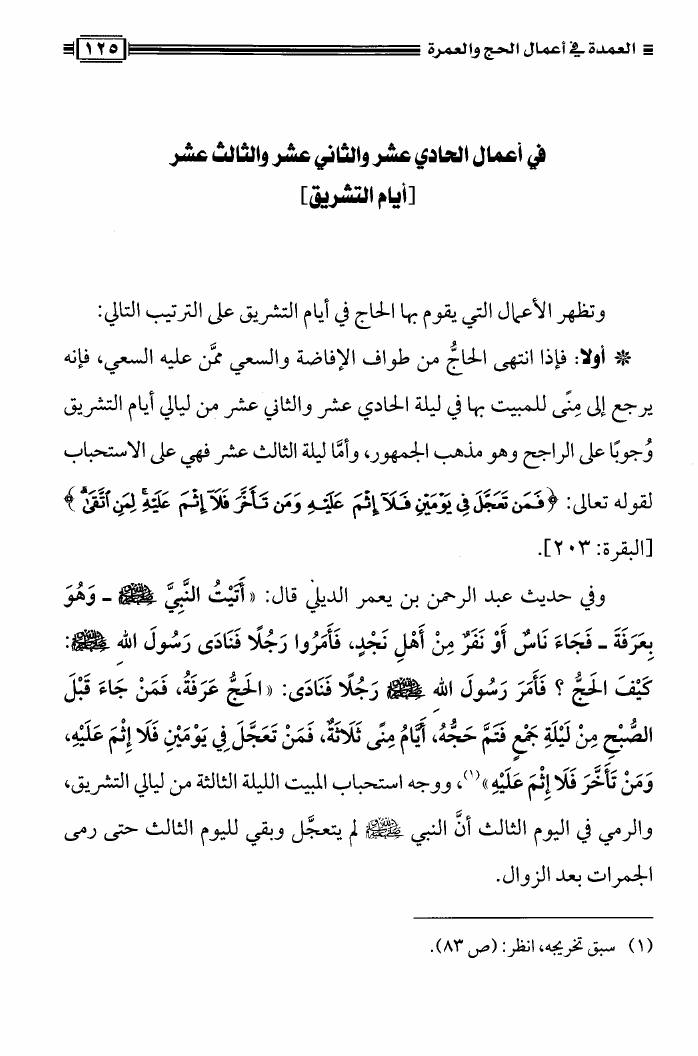 العمدة في أعمال الحج والعمرة ١٢٥
في أعمال الحادي عشر والثاني عشر والثالث عشر
[أيام التشريق]
وتظهر الأعمال التي يقوم بها الحاج في أيام التشريق على الترتيب التالي:
❊ أولا: فإذا انتهى الحاجُّ من طواف الإفاضة والسعي ممَّن عليه السعي، فإنه
يرجع إلى مِنًى للمبيت بها في ليلة الحادي عشر والثاني عشر من ليالي أيام التشريق
وُجوبًا على الراجح وهو مذهب الجمهور، وأمَّا ليلة الثالث عشر فهي على الاستحباب
لقوله تعالى: ﴿فَمَن تَعَجَّلَ فِي يَوْمَيْنِ فَلَآ إِثْمَ عَلَيْهِ وَمَن تَأَخَّرَ فَلَآ إِثْمَ عَلَيْهِ ۚ لِمَنِ ٱتَّقَىٰ ۗ﴾
[البقرة: ٢٠٣].
وفي حديث عبد الرحمن بن يعمر الديلي قال: «أَتَيْتُ النَّبِيَّ ﷺ ـ وَهُوَ
بِعَرَفَةَ ـ فَجَاءَ نَاسٌ أَوْ نَفَرٌ مِنْ أَهْلِ نَجْدٍ، فَأَمَرُوا رَجُلًا فَنَادَى رَسُولَ اللهِ ﷺ:
كَيْفَ الحَجُّ ؟ فَأَمَرَ رَسُولُ اللهِ ﷺ رَجُلًا فَنَادَى: «الحَجُّ عَرَفَةُ، فَمَنْ جَاءَ قَبْلَ
الصُّبْحِ مِنْ لَيْلَةِ جَمْعٍ فَتَمَّ حَجُّهُ، أَيَّامُ مِنًى ثَلَاثَةٌ، فَمَنْ تَعَجَّلَ فِي يَوْمَيْنِ فَلَا إِثْمَ عَلَيْهِ،
وَمَنْ تَأَخَّرَ فَلَا إِثْمَ عَلَيْهِ»(١)، ووجه استحباب المبيت الليلة الثالثة من ليالي التشريق،
والرمي في اليوم الثالث أنَّ النبي ﷺ لم يتعجَّل وبقي لليوم الثالث حتى رمى
الجمرات بعد الزوال.
(١) سبق تخريجه، انظر: (ص ٨٣).